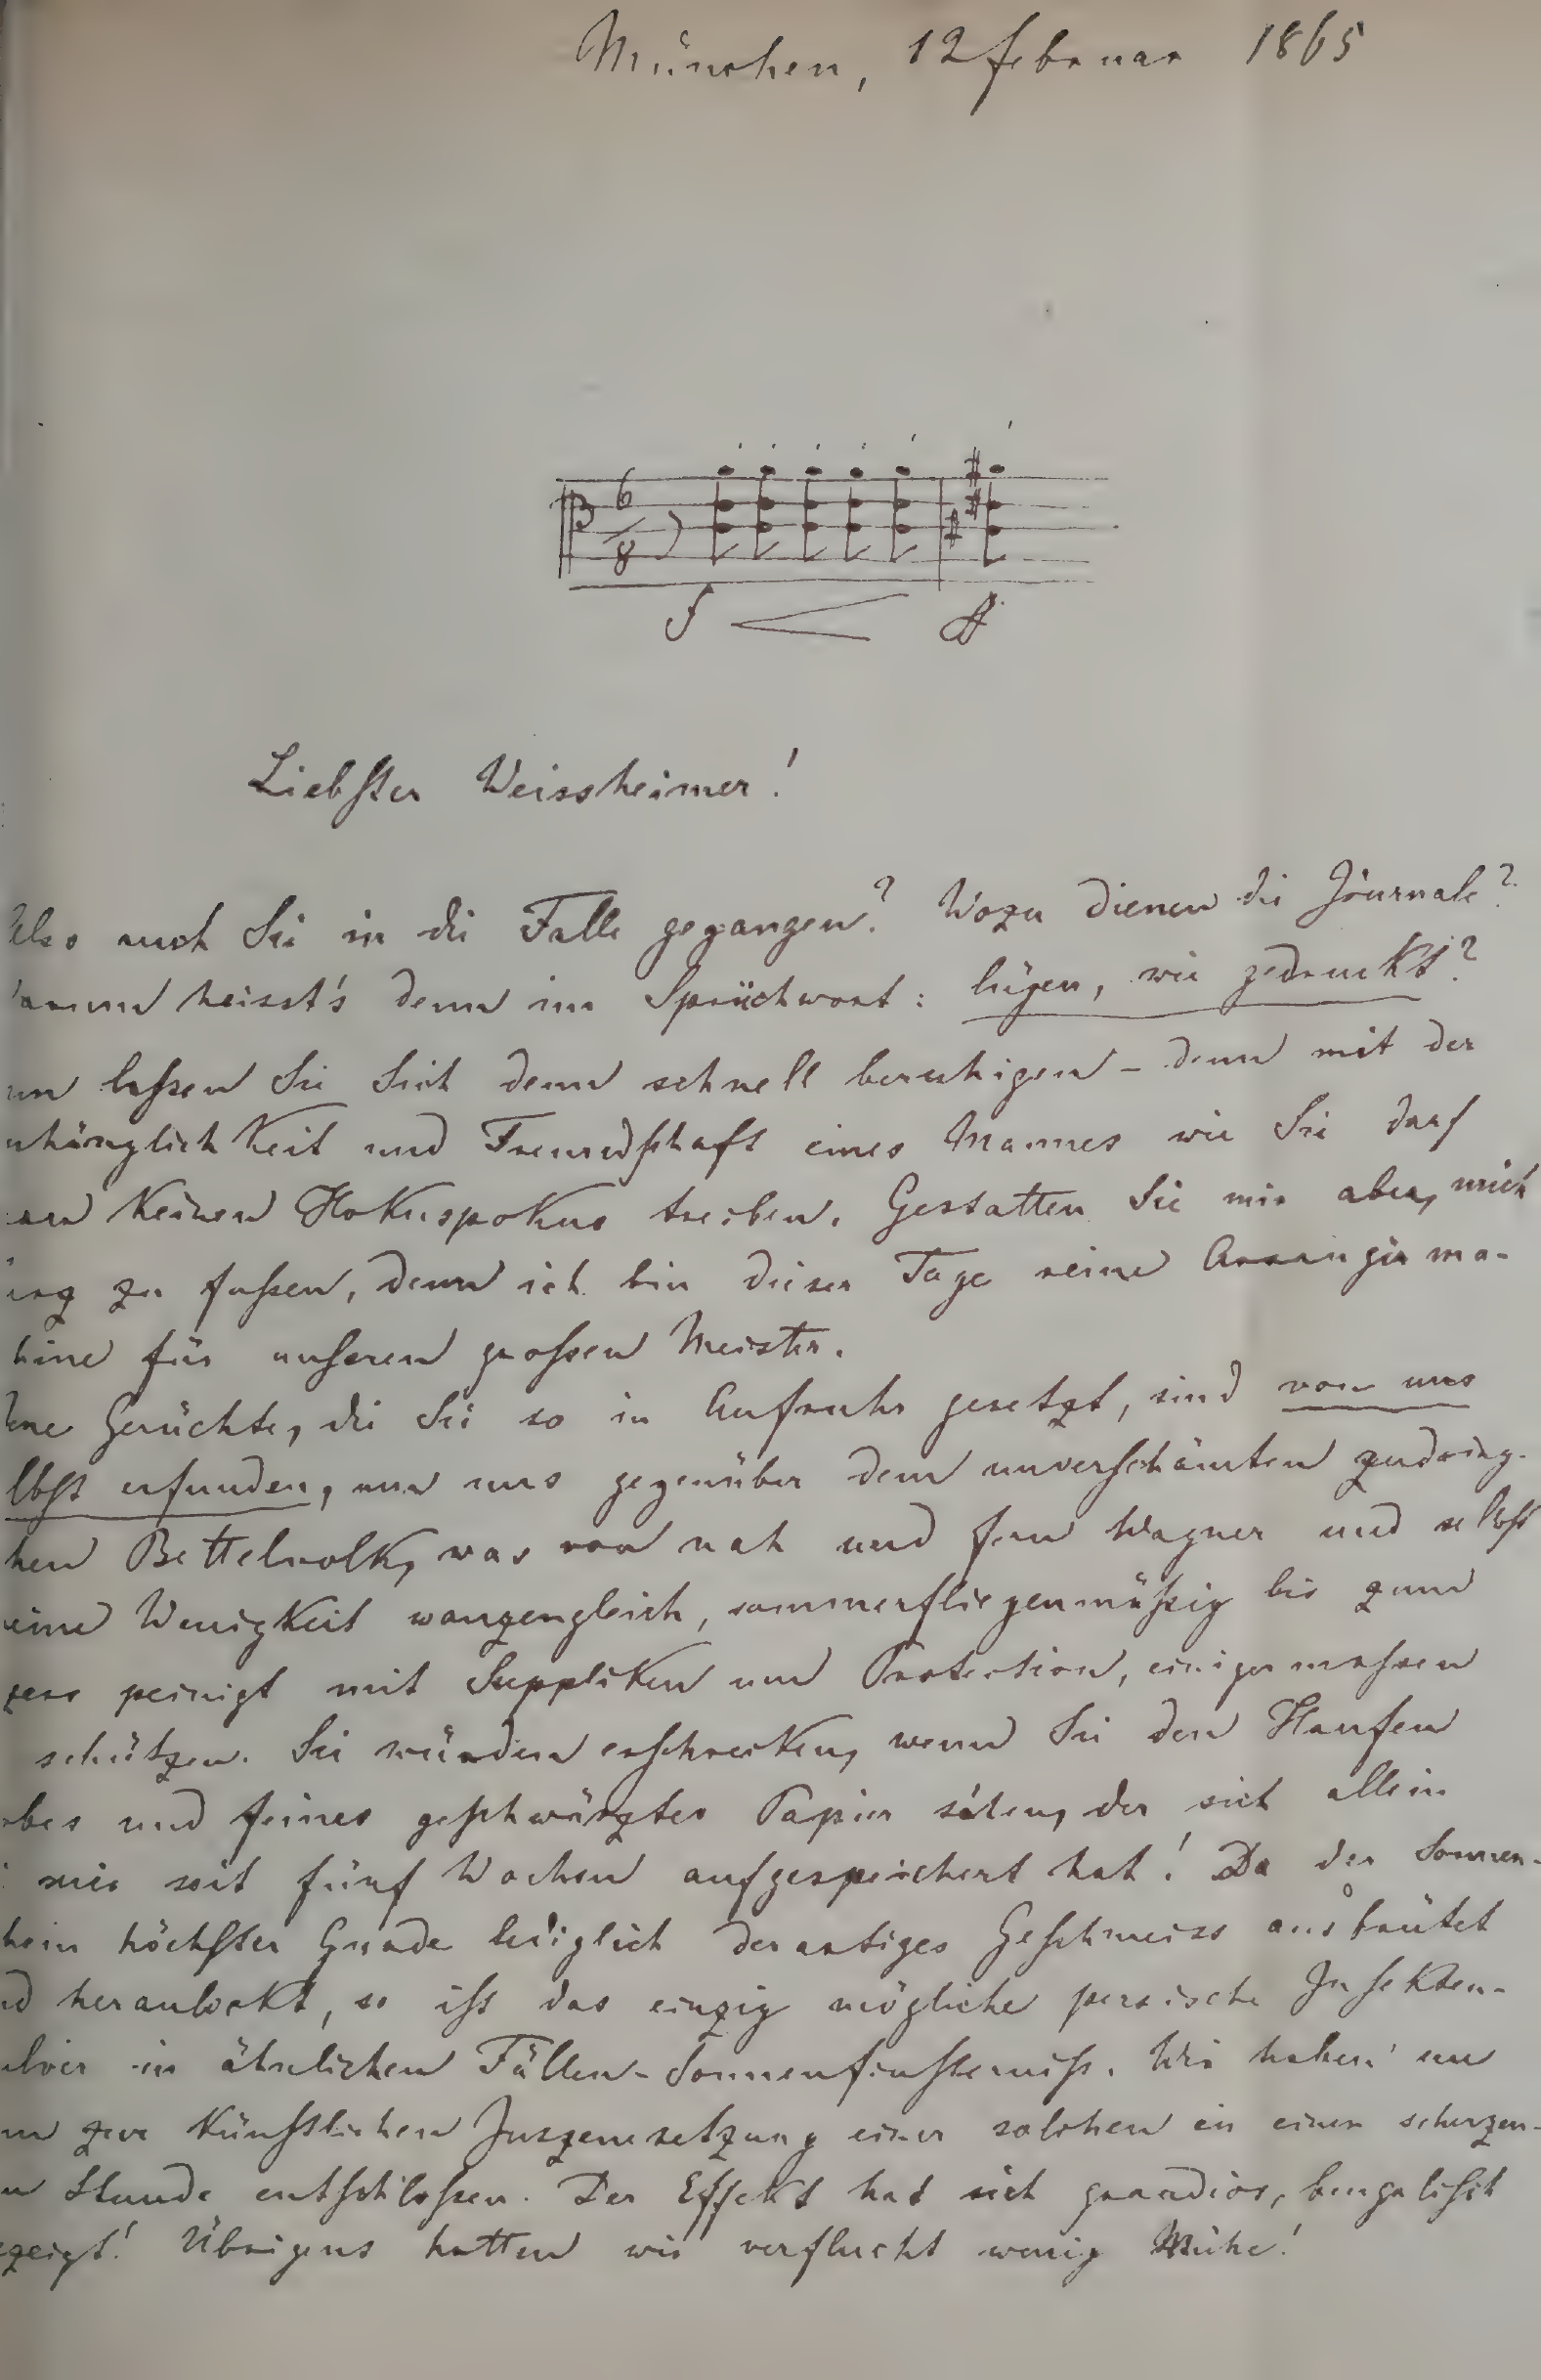 München, 12 Februar 1865
6
8
f ff
Liebster Weissheimer!
Also auch Sie in die Falle gegangen? Wozu dienen die Journale?
arum heisst's denn im Sprüchwort: lügen, wie gedruckt?
un lassen Sie Sich denn schnell beruhigen – denn mit der
nhänglichkeit und Freundschaft eines Mannes wie Sie darf
an keinen Hokuspokus treiben. Gestatten Sie mir aber, mich
urz zu fassen, denn ich bin dieser Tage reine Arrangirma-
hine für unseren grossen Meister.
ene Gerüchte, die Sie so in Aufruhr gesetzt, sind von uns
lbst erfunden, um uns gegenüber dem unverschämten zudring-
hen Bettelvolk, was von nah und fern Wagner und selbst
eine Wenigkeit wanzengleich, sommerfliegenmässig bis zum
peinigt mit Suppliken um Protection, einigermassen
schützen. Sie würden erschrecken, wenn Sie den Haufen
obes und feines geschwärztes Papier sähen, der sich allein
i mir seit fünf Wochen aufgespeichert hat! Da der Sonnen-
hein höchster Gnade lediglich derartiges Geschmeiss ausbrütet
nd heranlockt, so ist das einzig mögliche persische Insekten-
ulver in ähnlichen Fällen – Sonnenfinsterniss. Wir haben uns
un zur künstlichen Inszenesetzung einer solchen in einer scherzen-
n Stunde entschlossen. Der Effekt hat sich grandios, bengalisch
ezeigt! Übrigens hatten wir verflucht wenig Mühe!